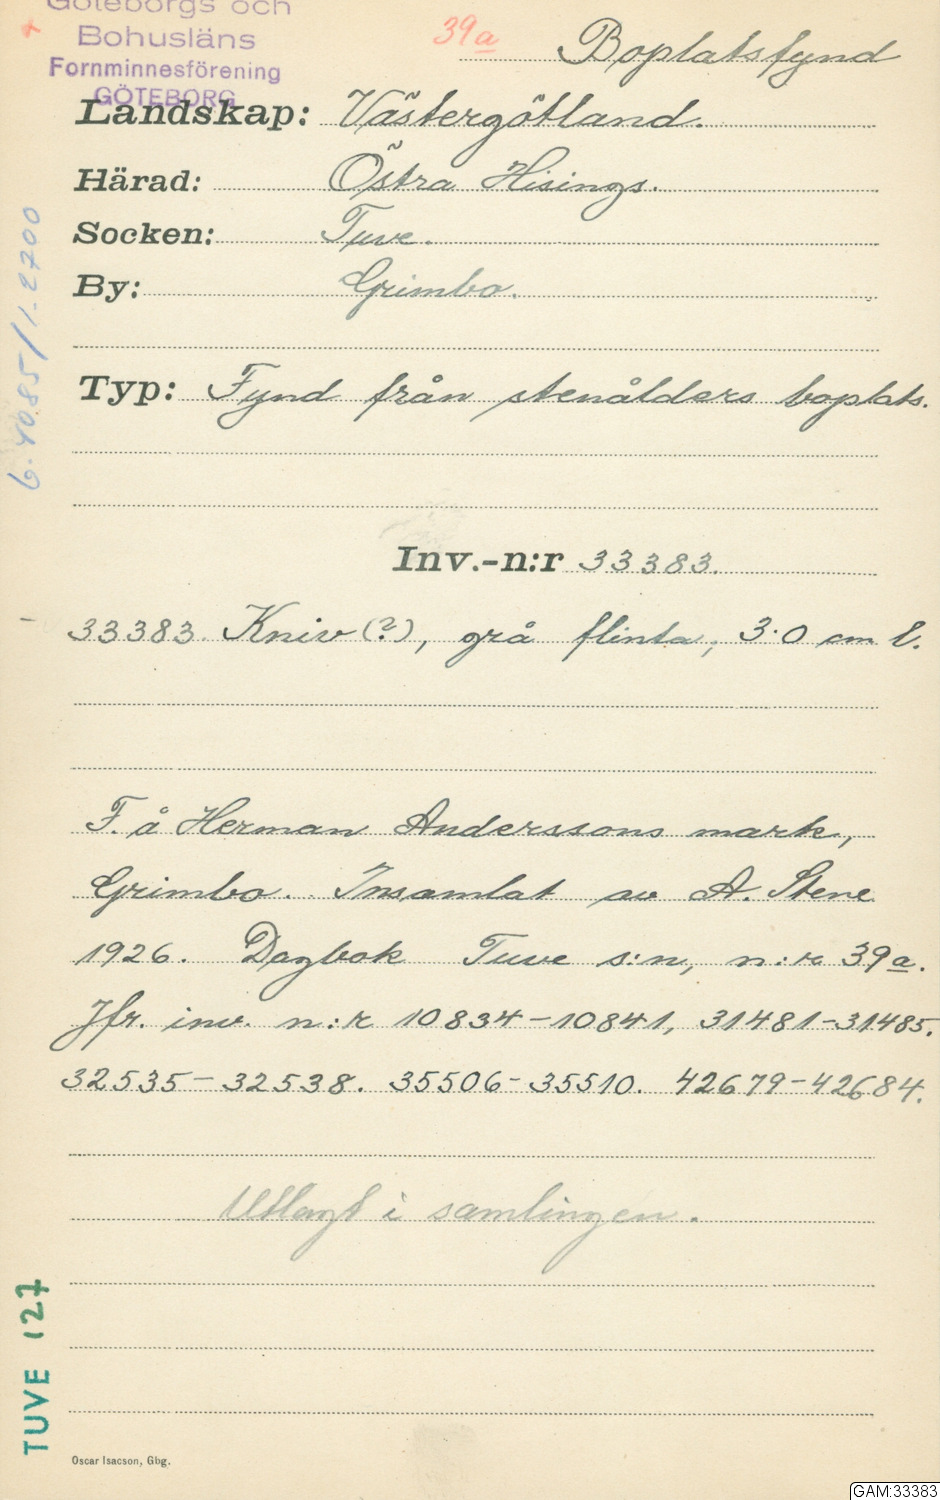 Göteborgs och
Bohusläns
Fornminnesförening
GÖTEBORG
39a
Boplatsfynd
Landskap: Västergötland.
Härad: Östra Hisings.
Socken: Tuve.
By: Grimbo.
Typ: Fynd från stenålders boplats.
Inv.-n:r 33383.
33383 Kniv (?), grå flinta, 3.0 cm l.
F. å Herman Anderssons mark,
Grimbo. Insamlat av A. Stene
1926. Dagbok Tuve s:n, n:r 39a.
Jfr. inv. n:r 10834-10841, 31481-31485.
32535-32538. 35506-35510. 42679-42684.
Utlagt i samlingen.
4085/1-2700
TUVE 127
Oscar Isacson, Gbg.
GAM:33383